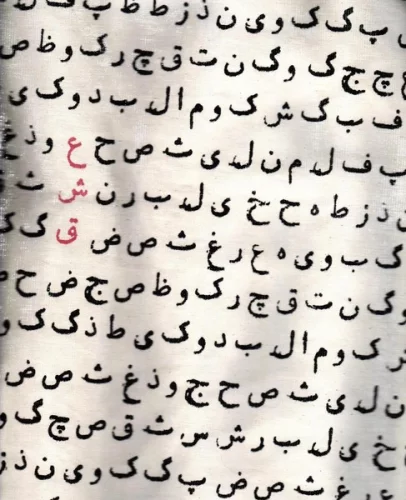 پ گ ک و ی ن ذ ز ط ظ پ ف ل د
چ ج گ و گ ن ت ق چ ر ک و ظ ص
ف ب گ ش ک و م ا ل د ب د و ک ی
پ ف ل د م ن ل د ی ث ص ح ع و ذ غ
ن ذ ز ط ه ح خ ی ل د ب ر ن ش ث
گ ب و ی ه ع ر غ ث ص ض ق گ ک
و گ ن ت ق چ ر ک و ظ ص ج ض ح
ک و م ا ل د ب د و ک ی ط ذ گ ک و
ن ل د ی ث ص ح ج و ذ غ ث ص ض
خ ی ل د ب ر ش س ث ق ص چ گ و
ع غ ث ص ض پ گ ک و ی ن ذ ز